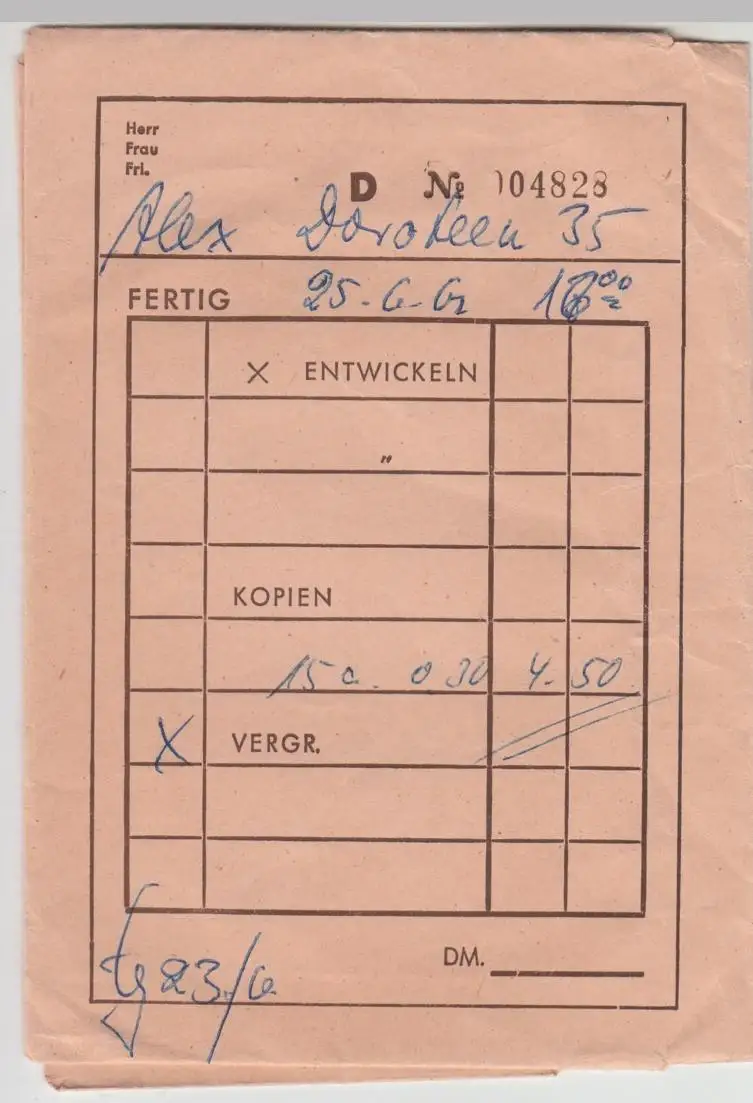 Herr
Frau
Frl.
D № 004828
Alex Dorotheen 35
FERTIG 25-6-62 16⁰⁰
X ENTWICKELN
"
KOPIEN
15 a. 0 30 4. 50
X VERGR.
DM.
23/6